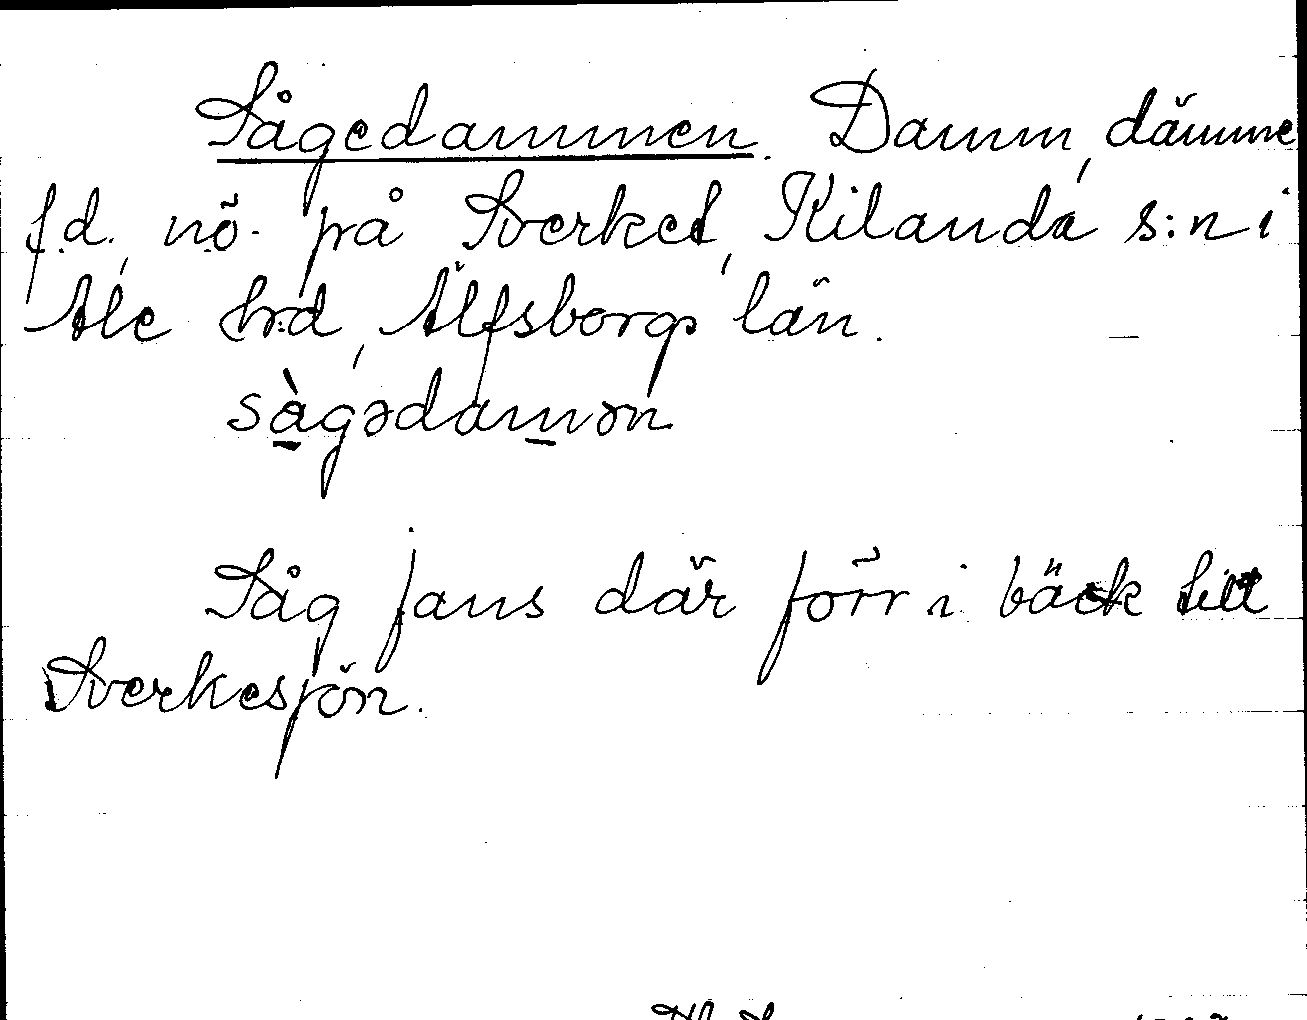 Sågedammen. Damm, dämme
f.d., nö. på Sverket, Kilanda s:n i
Ale hrd, Älfsborgs län.
sàgədamən
Såg fans där förr i bäck till
Sverkesjön.